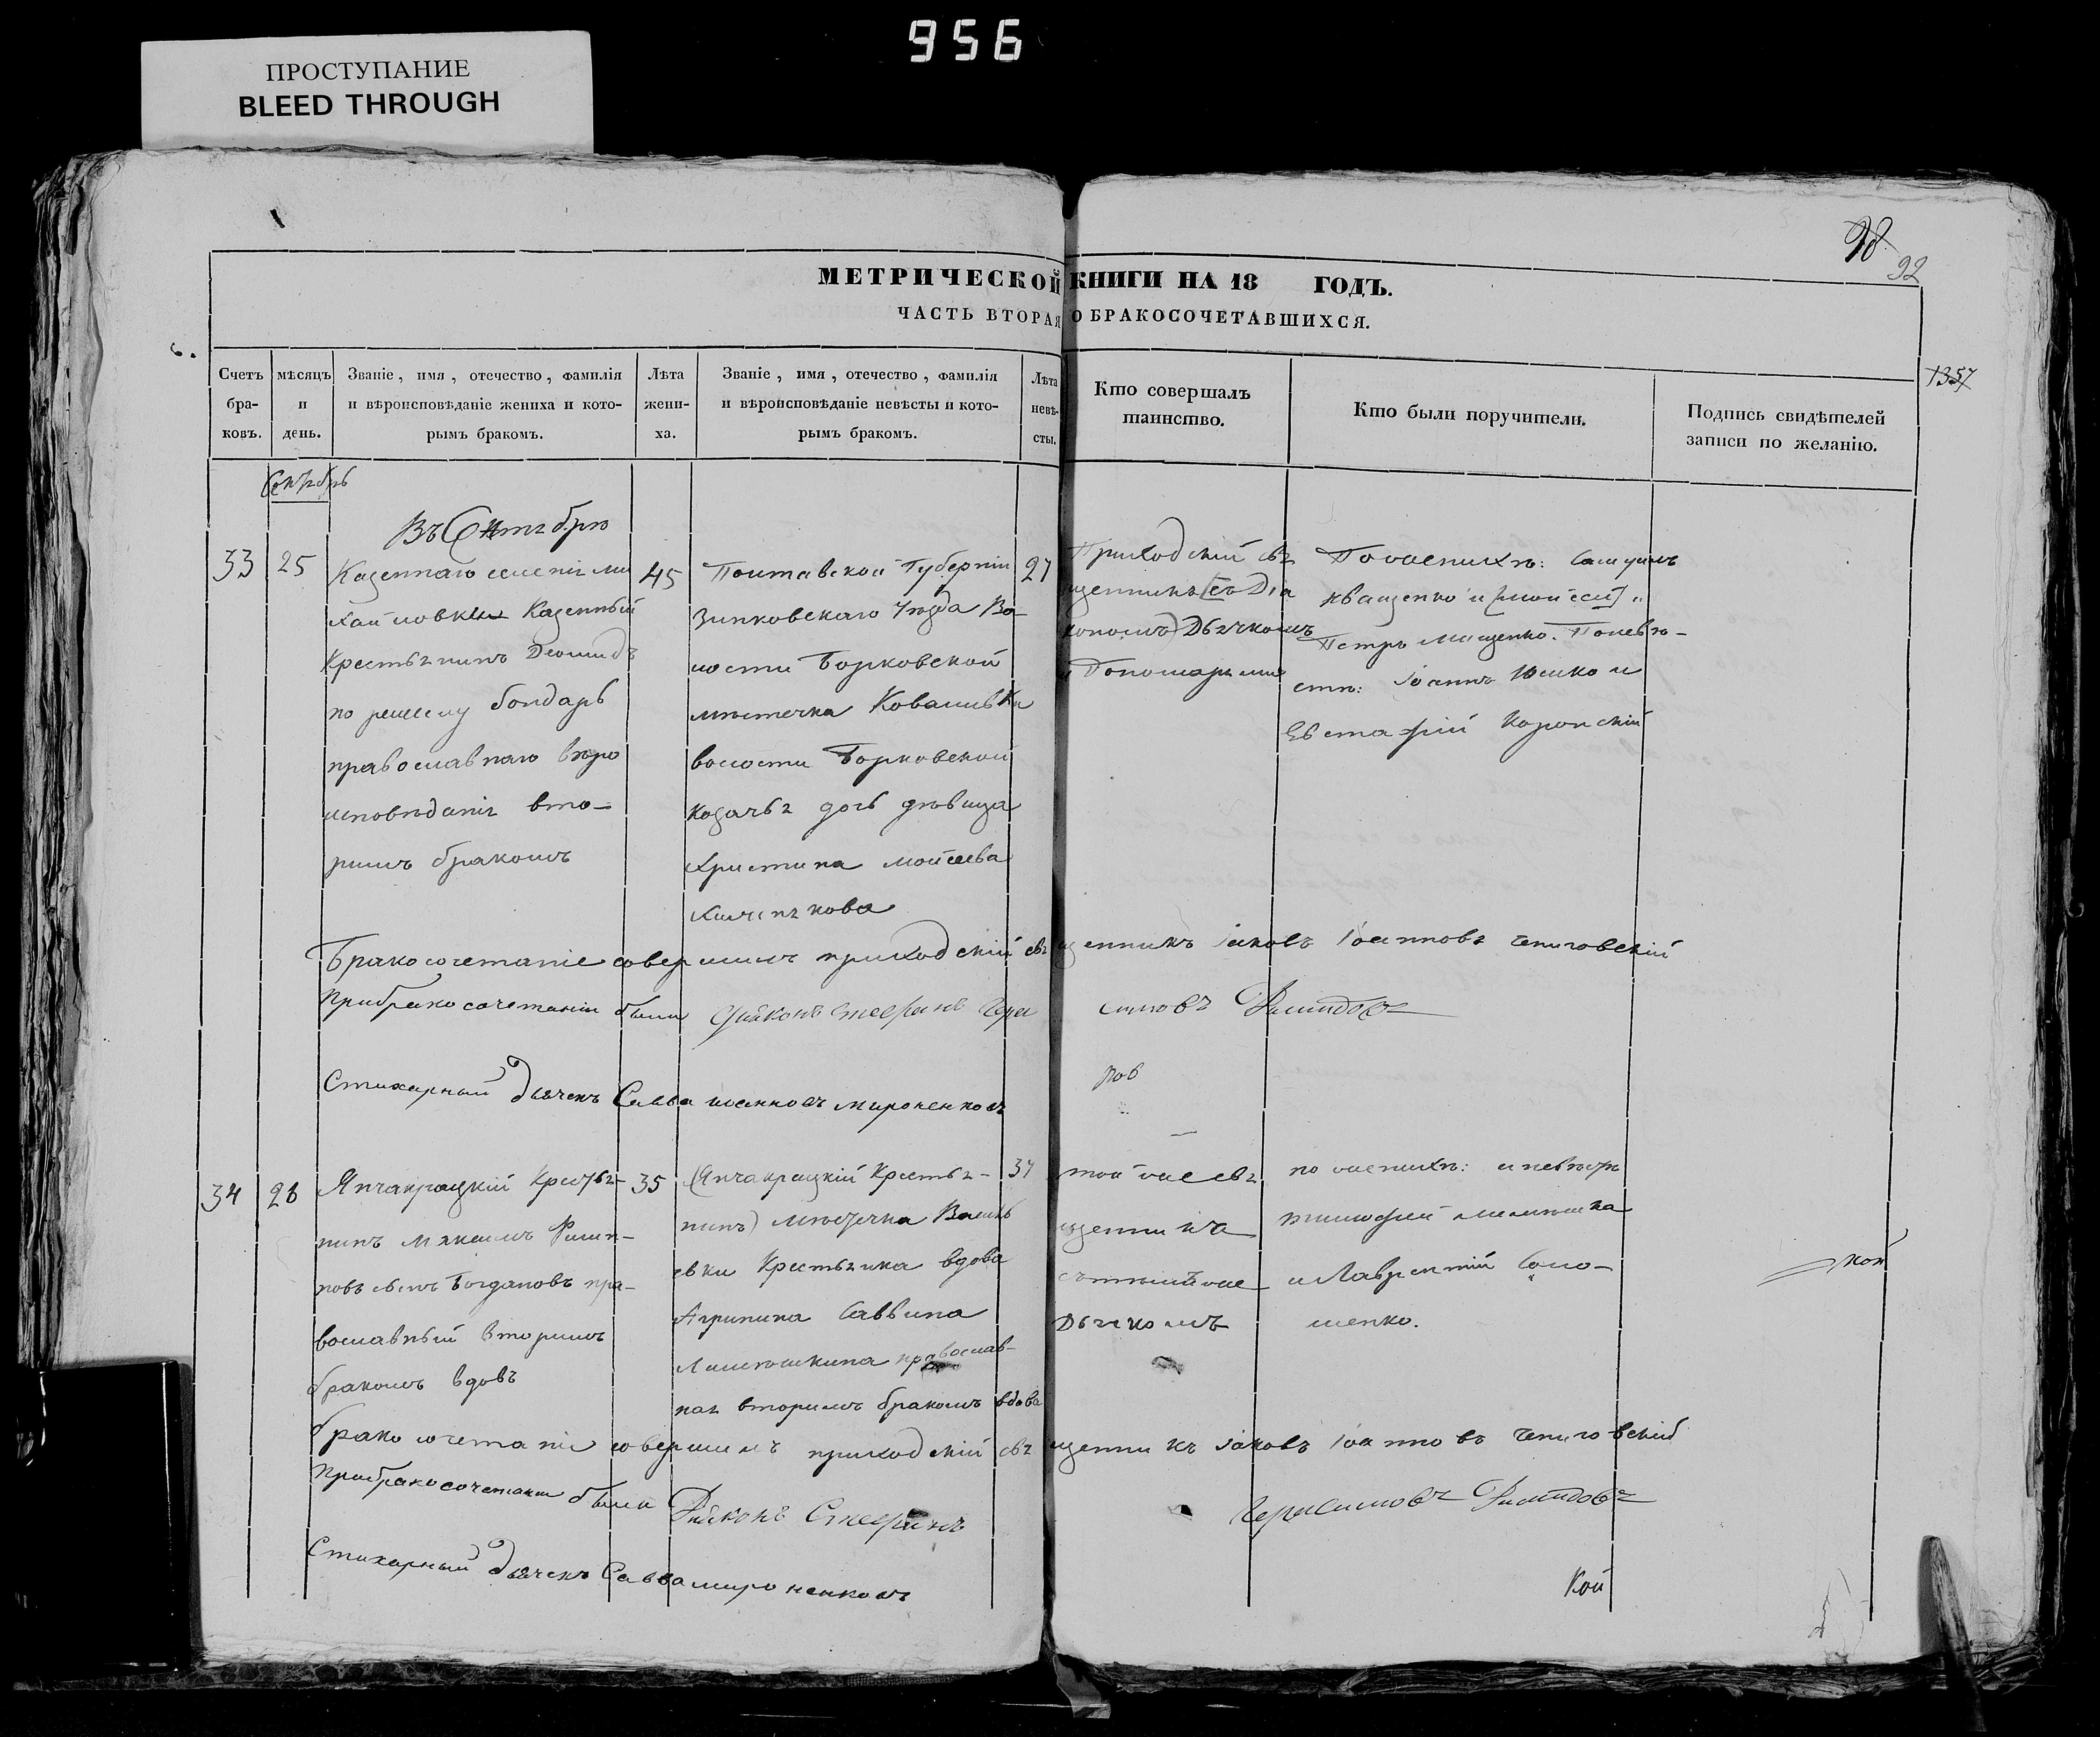 956
ПРОСТУПАНИЕ
BLEED THROUGH
98.
92
МЕТРИЧЕСКОЙ КНИГИ НА 18 ГОДЪ.
ЧАСТЬ ВТОРАЯ О БРАКОСОЧЕТАВШИХСЯ.
1357
Счетъ бра-ковъ.
мѣсяцъ и день.
Званіе, имя, отечество, фамилія
и вѣроисповѣданіе жениха и кото-
рымъ бракомъ.
Лѣта жени-ха.
Званіе, имя, отечество, фамилія
и вѣроисповѣданіе невѣсты и кото-
рымъ бракомъ.
Лѣта невѣ-сты.
Кто совершалъ
таинство.
Кто были поручители.
Подпись свидѣтелей
записи по желанію.
Въ Сентябрѣ
33
25
Казеннаго селенія Ми
хайловки Казенный
Крестьянинъ Деомидъ
бондарь
православнаго вѣро
исповѣданія вто-
римъ бракомъ
45
Полтавской Губерніи
Зинковскаго Уѣзда Во-
лости Борковской
мѣстечка Ковалевки
волости Борковской
козачья дочь дѣвица
Христина Моисеева
27
Приходскій свя
щенникъ съ Діа
кономъ Дьячкомъ
и Пономаремъ
По женихѣ:
Кващенко и
Петръ Мищенко. По невѣ-
стѣ: Іоаннъ Юшко и
Евстафій
Бракосочетаніе совершилъ приходскій священникъ Іаковъ Іоанновъ Чениговскій
При бракосочетаніи были Діаконъ Стефанъ Гера симовъ Димидовъ
Стихарный Дьячекъ Савва Иоанновъ Мироненковъ
34
35
нинъ Максимъ Филип-
повъ сынъ Богдановъ пра-
вославный вторимъ
бракомъ вдовъ
Крестья-
нинъ) мѣстечка Василь
евки Крестьянка вдова
Агрипина Саввина
православ-
ная вторимъ бракомъ вдова
37
той же свя
щенникъ
съ тѣмъ же
Дьячкомъ
по женихѣ: и невѣстѣ
Тимофей
и Лаврентій Соло-
шенко.
бракосочетаніе совершилъ приходскій священникъ Іаковъ Іоанновъ Чениговскій
При бракосочетаніи были Діаконъ Стефанъ Герасимовъ Димидовъ
Стихарный Дьячекъ Савва Мироненковъ
Кой